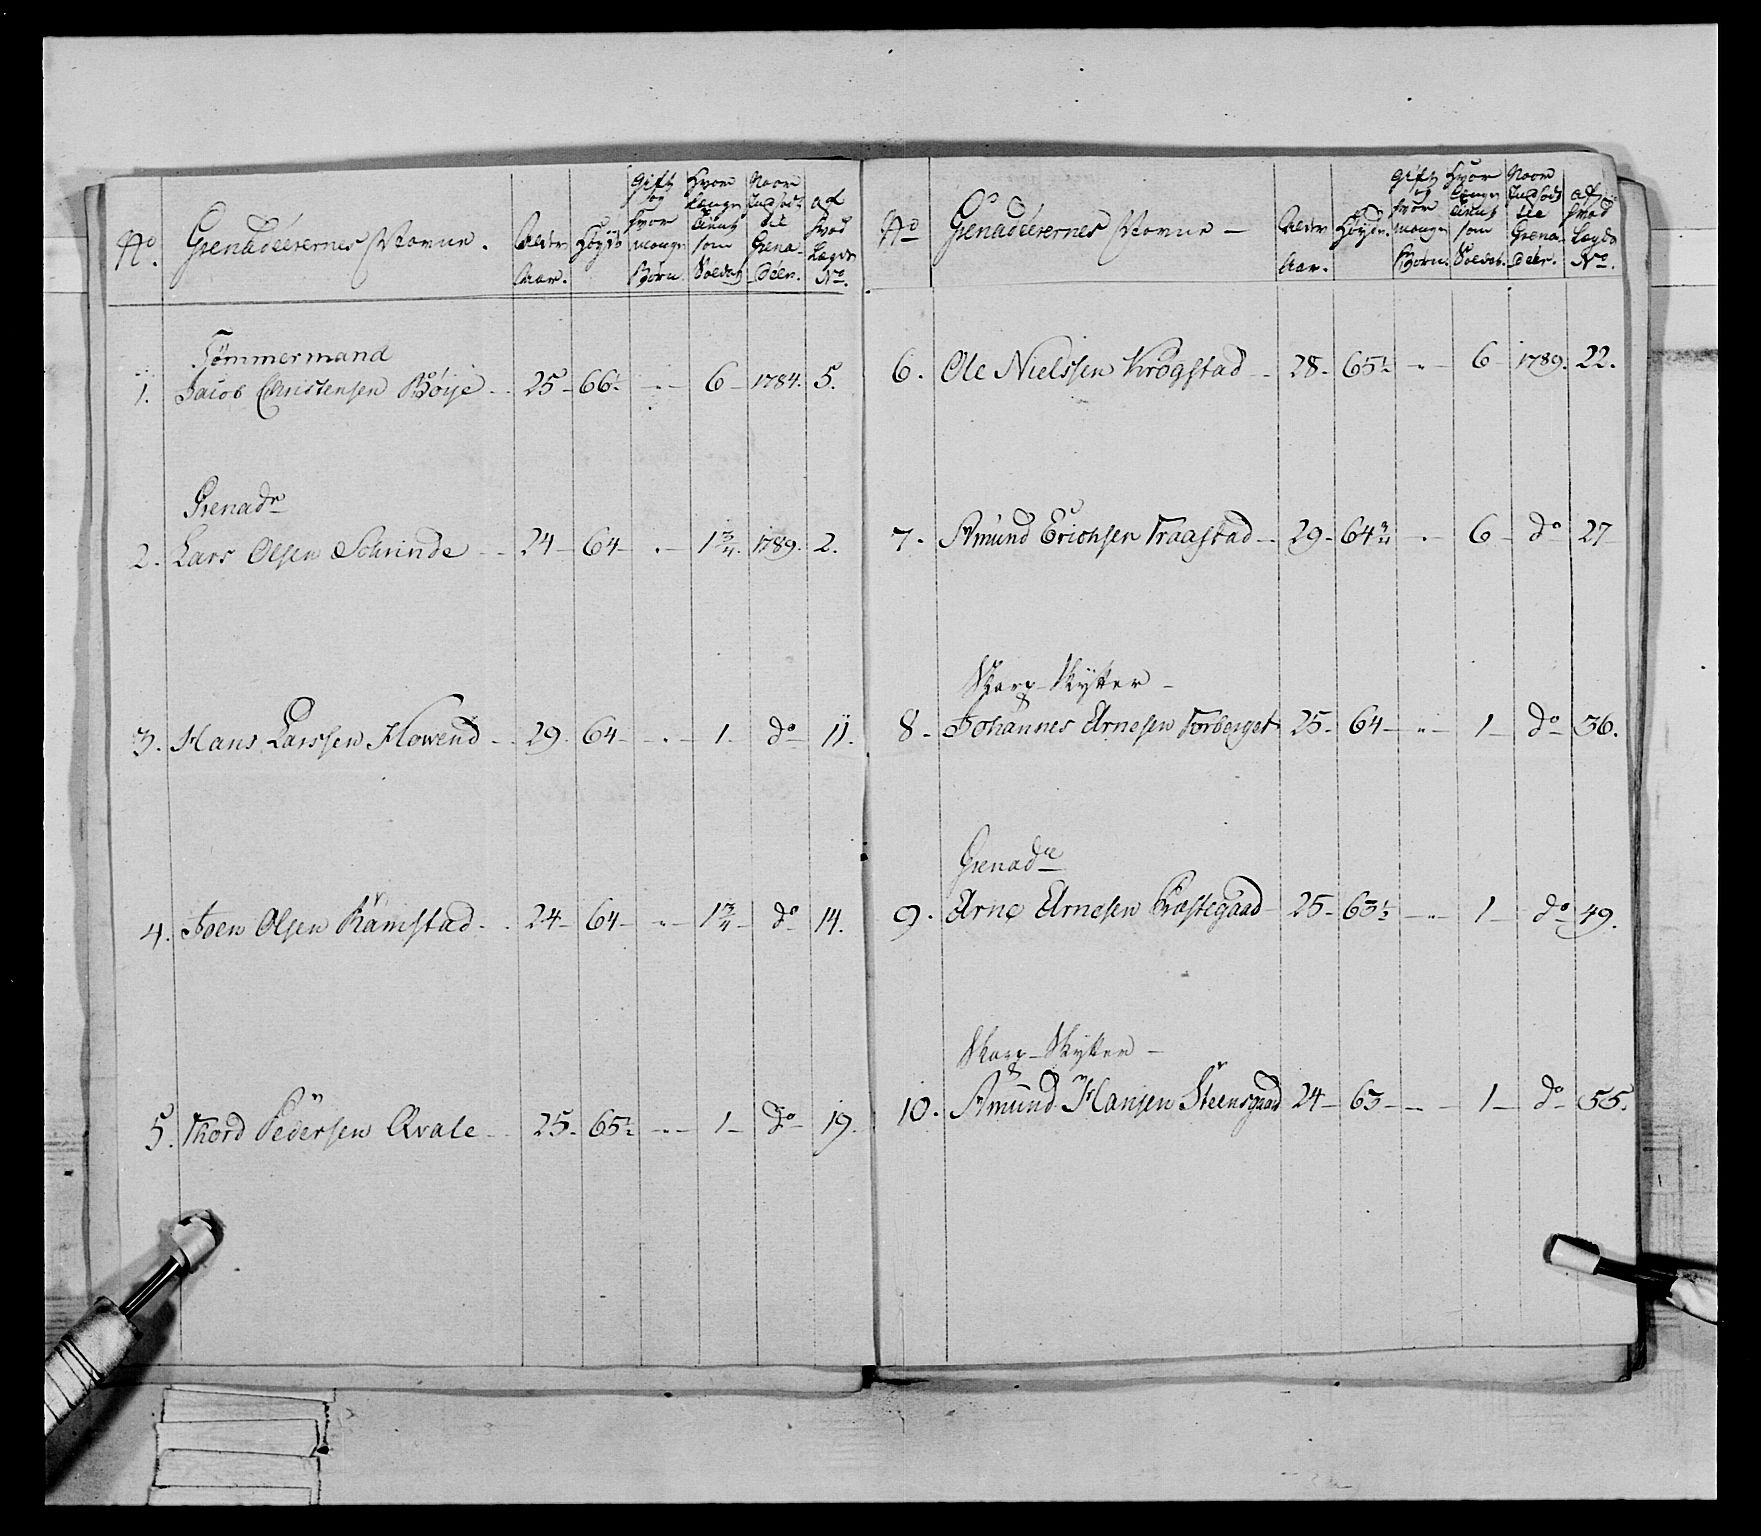 No. Grenadeerernes Navne. Alder Aar. Høyde Gift og hvor mange Børn. Hvor længe tient som Soldat Naar Indsadt til Grenadeer. af hvad Lægds No.
Tømmermand
1. Jacob Christensen Bøije 25 66½ " 6 1784. 5.
Grenadr
2. Lars Olsen Schrinde 24 64 " 1¾ 1789. 2.
3. Hans Larssen Howend 29. 64 " 1 do 11.
4. Joen Olsen Ramstad 24 64 " 1¾ do 14.
5. Thord Pedersen Qvale 25 65½ " 1 do 19.
No Grenadeerernes Navne Alder Aar. Høyde. Gift og hvor mange Børn. Hvor længe tient som Soldat. Naar Indsadt til Grenadeer. af hvad Lægds No.
6. Ole Nielssen Krogstad 28 65½ " 6 1789. 22.
7. Amund Erichsen Traastad 29 64¾ " 6 do 27
Skarp-Skytter
8 Johannes Arnesen Forberget 25 64 " 1 do 36.
Grenadr
9. Arne Arnesen Præstegaad 25 63½ " 1 do 49.
Skarp-Skytter
10. Amund Hansen Steensgaad 24 63 " 1 do 55.